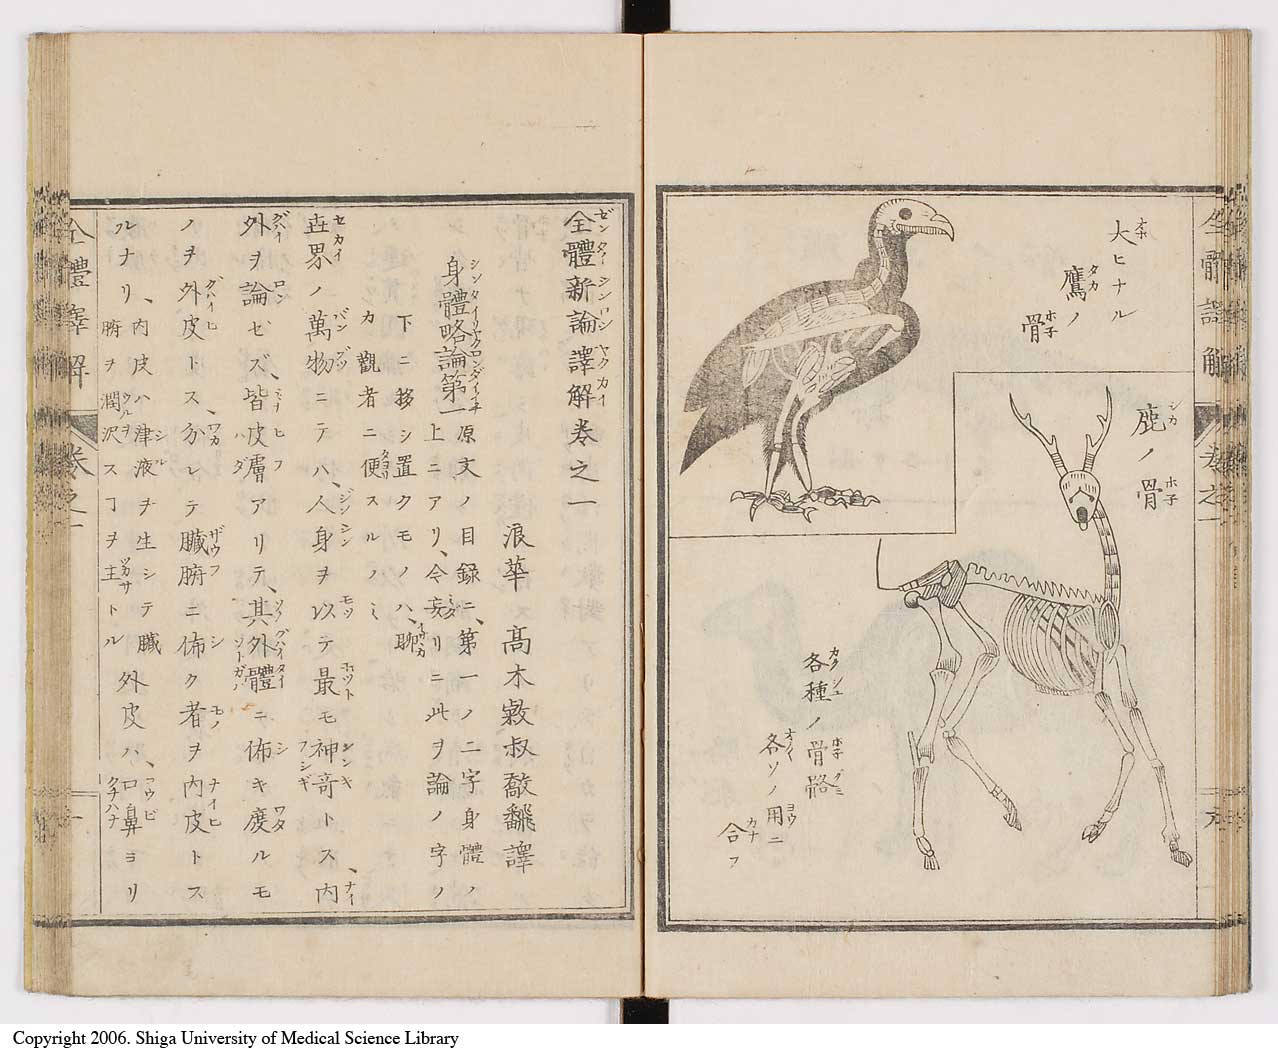 大ヒナル
鷹ノ
骨
鹿ノ骨
各種ノ骨骼
各ソノ用ニ
合フ
全體新論譯解巻之一
浪華 髙木
譯
身體略論第一
原文ノ目録ニ、第一ノ二字身體ノ
上ニアリ、今妄リニ此ヲ論ノ字ノ
下ニ移シ置クモノハ、聊
カ觀者ニ便スルノミ
世界ノ萬物ニテハ、人身ヲ以テ最モ神奇トス、内
外ヲ論ゼズ、皆皮膚アリテ、其外體ニ佈キ度ルモ
ノヲ外皮トス、分レテ臓腑ニ佈ク者ヲ内皮トス
ルナリ、内皮ハ津液ヲ生シテ臓
腑ヲ潤沢スヿヲ主トル
外皮ハ、口鼻ヨリ
全體譯解
巻之一
一
Copyright 2006. Shiga University of Medical Science Library